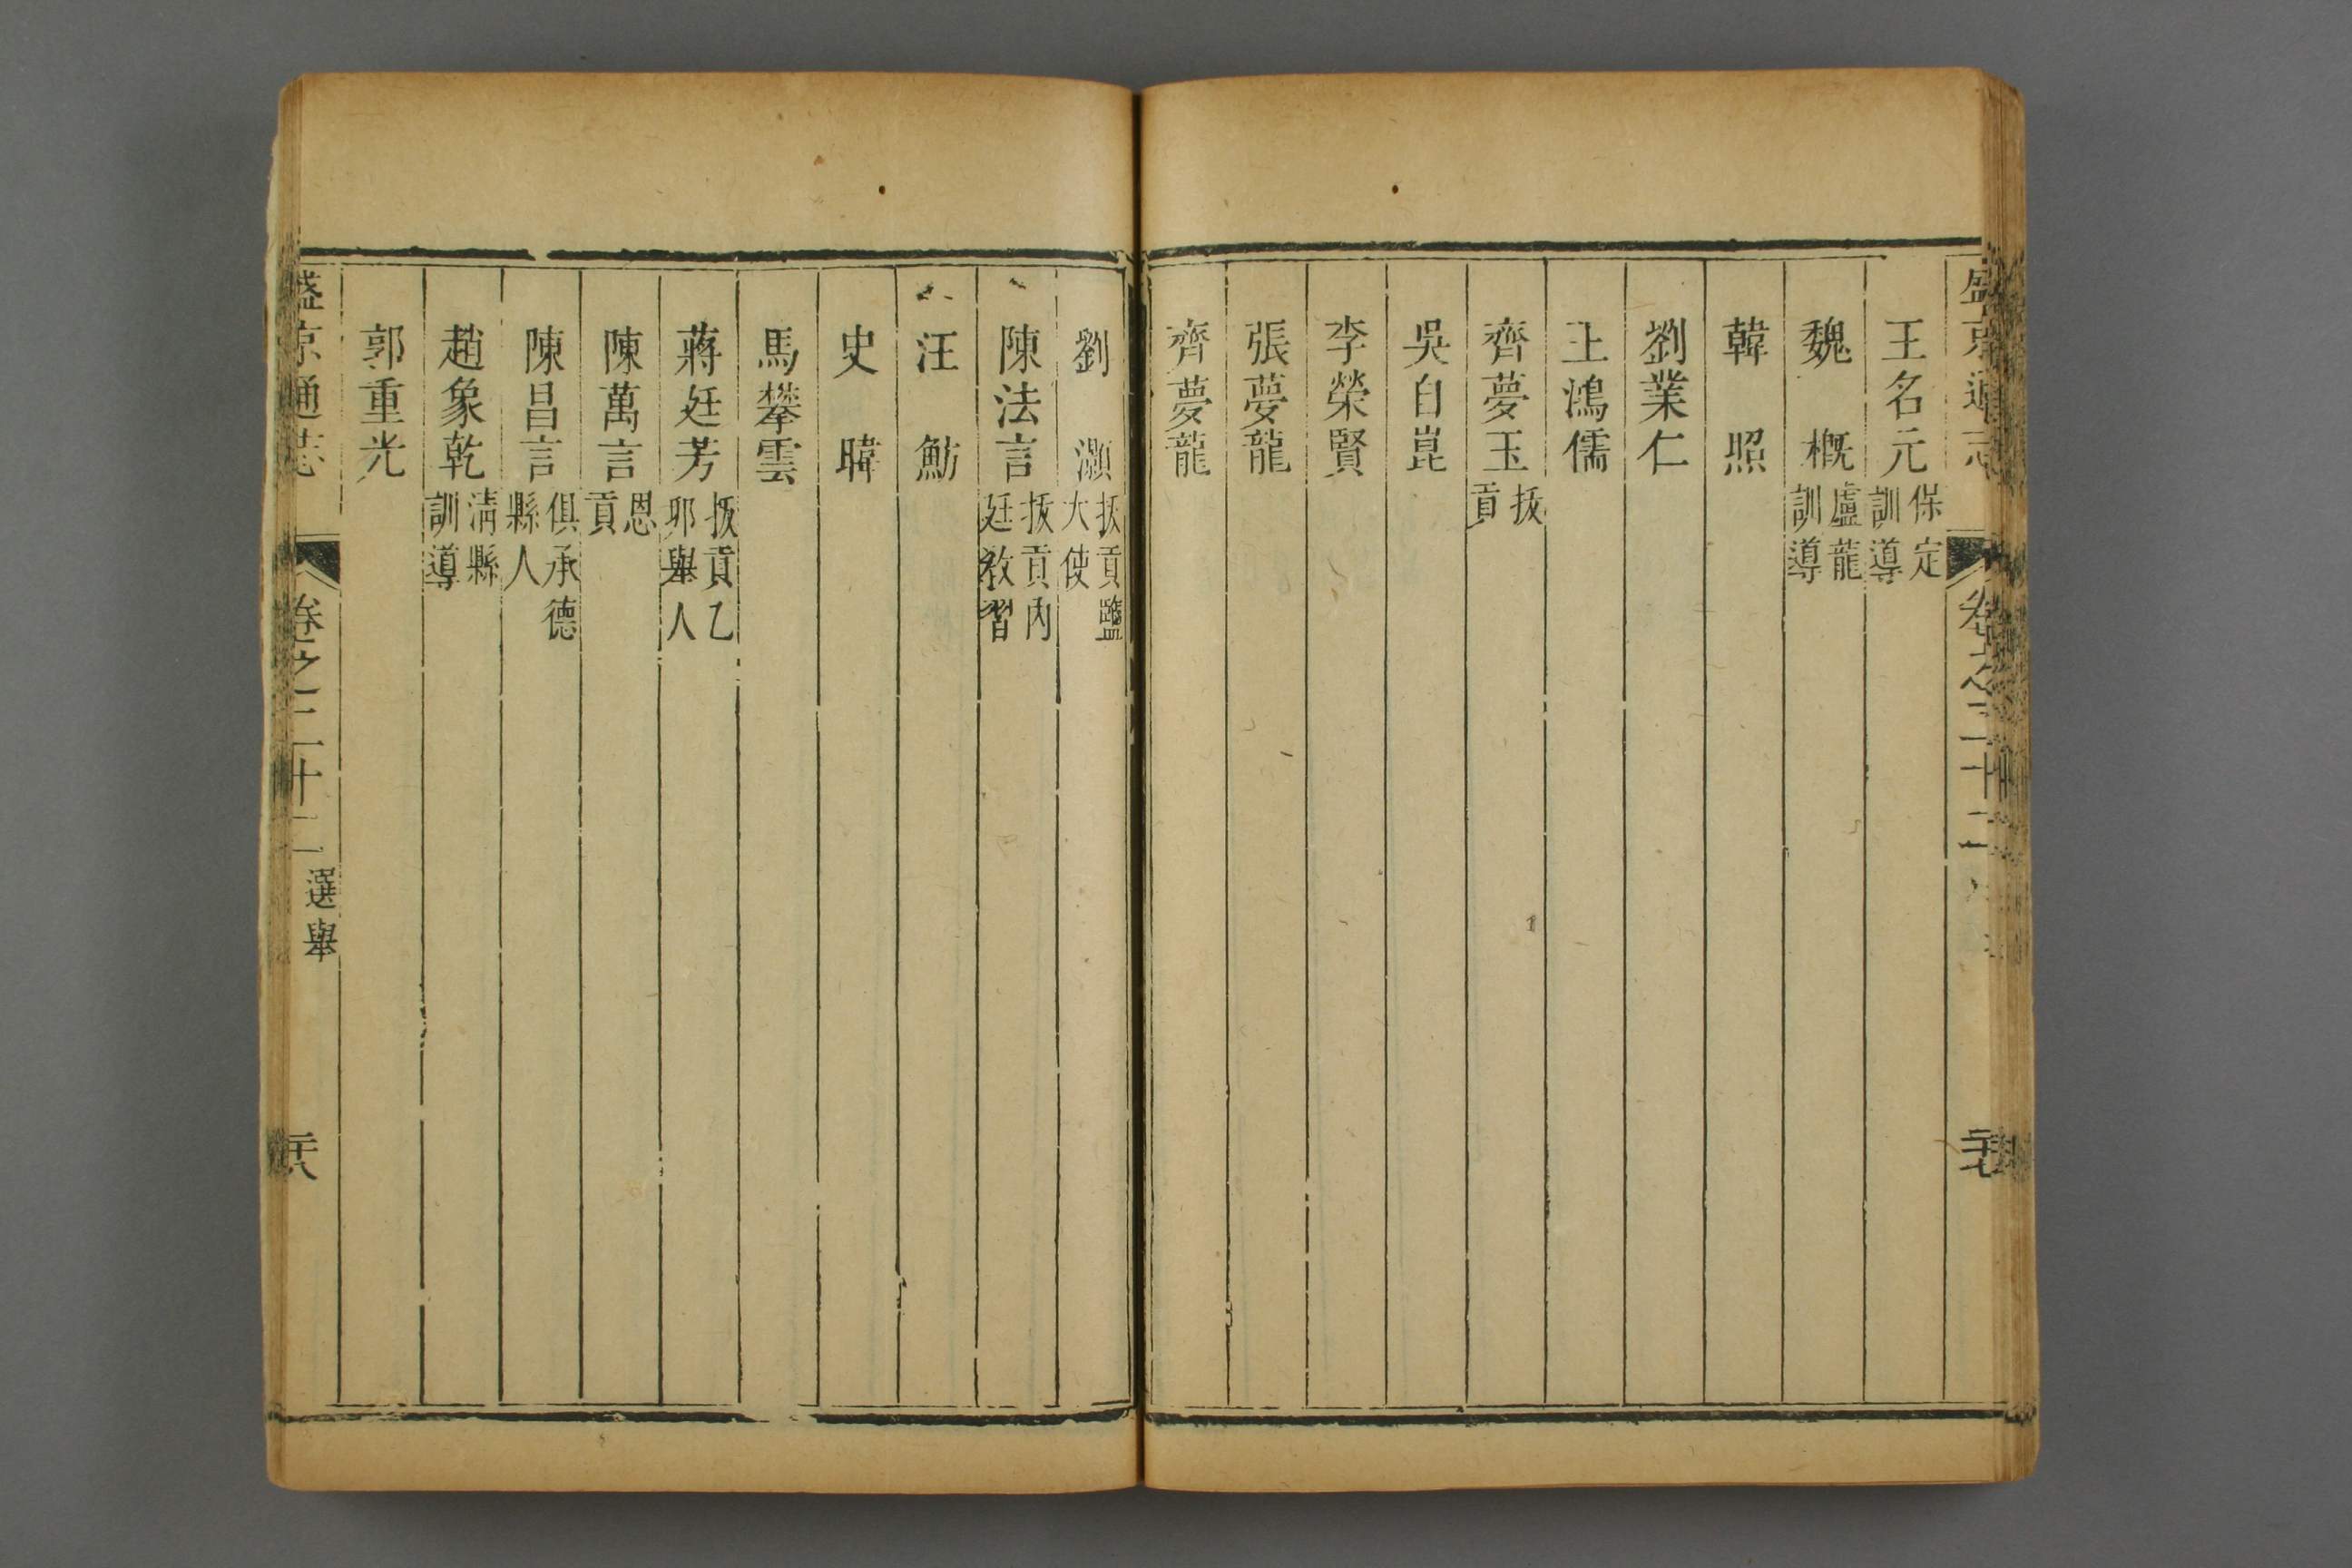 盛京通志
卷之二十二
王名元 保定訓導
魏 概 盧龍訓導
韓 照
劉業仁
王鴻儒
齊夢玉 拔貢
吳自崑
李榮賢
張夢龍
齊夢龍
劉 灝 拔貢鹽大使
陳法言 拔貢內廷教習
汪 魴
史 暐
馬攀雲
蔣廷芳 拔貢乙卯舉人
陳萬言 恩貢
陳昌言 俱承德縣人
趙象乾 清縣訓導
郭重光
盛京通志
卷之二十二 選舉 共